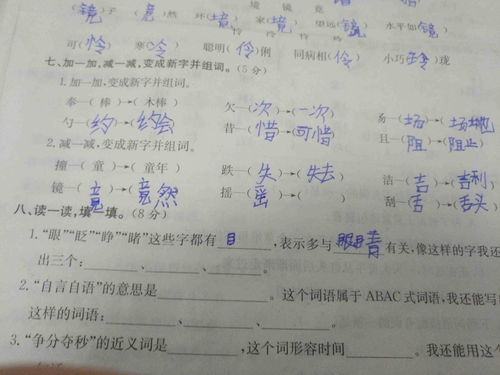 境 镜 竟
(镜)子 (竟)然 环(境) 家(境) 望远(镜) 水平如(镜)
怜 冷 伶 玲
可(怜) 寒(冷) 聪明(伶)俐 同病相(伶) 小巧(玲)珑
七、加一加,减一减,变成新字并组词。(5分)
1.加一加,变成新字并组词。
奉—(棒)→(木棒) 欠—(次)→(一次) 昜—(场)→(场地)
勺—(约)→(约会) 昔—(惜)→(可惜) 且—(阻)→(阻止)
2.减一减,变成新字并组词。
撞—(童)→(童年) 跌—(失)→(失去) 洁—(吉)→(吉利)
镜—(竟)→(竟然) 摇—(䍃)→( ) 刮—(舌)→(舌头)
八、读一读,填一填。(8分)
1.“眼”“眨”“睁”“睹”这些字都有目,表示多与眼睛有关,像这样的字我还
出三个:______、______、______。
2.“自言自语”的意思是______。这个词语属于ABAC式词语,我还能写
这样的词语:______、______、______。
3.“争分夺秒”的近义词是______,这个词形容时间______。我还能用这个